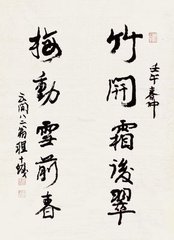 壬午春
竹開霜後翠
梅動雪前春
云間八二翁程十髮